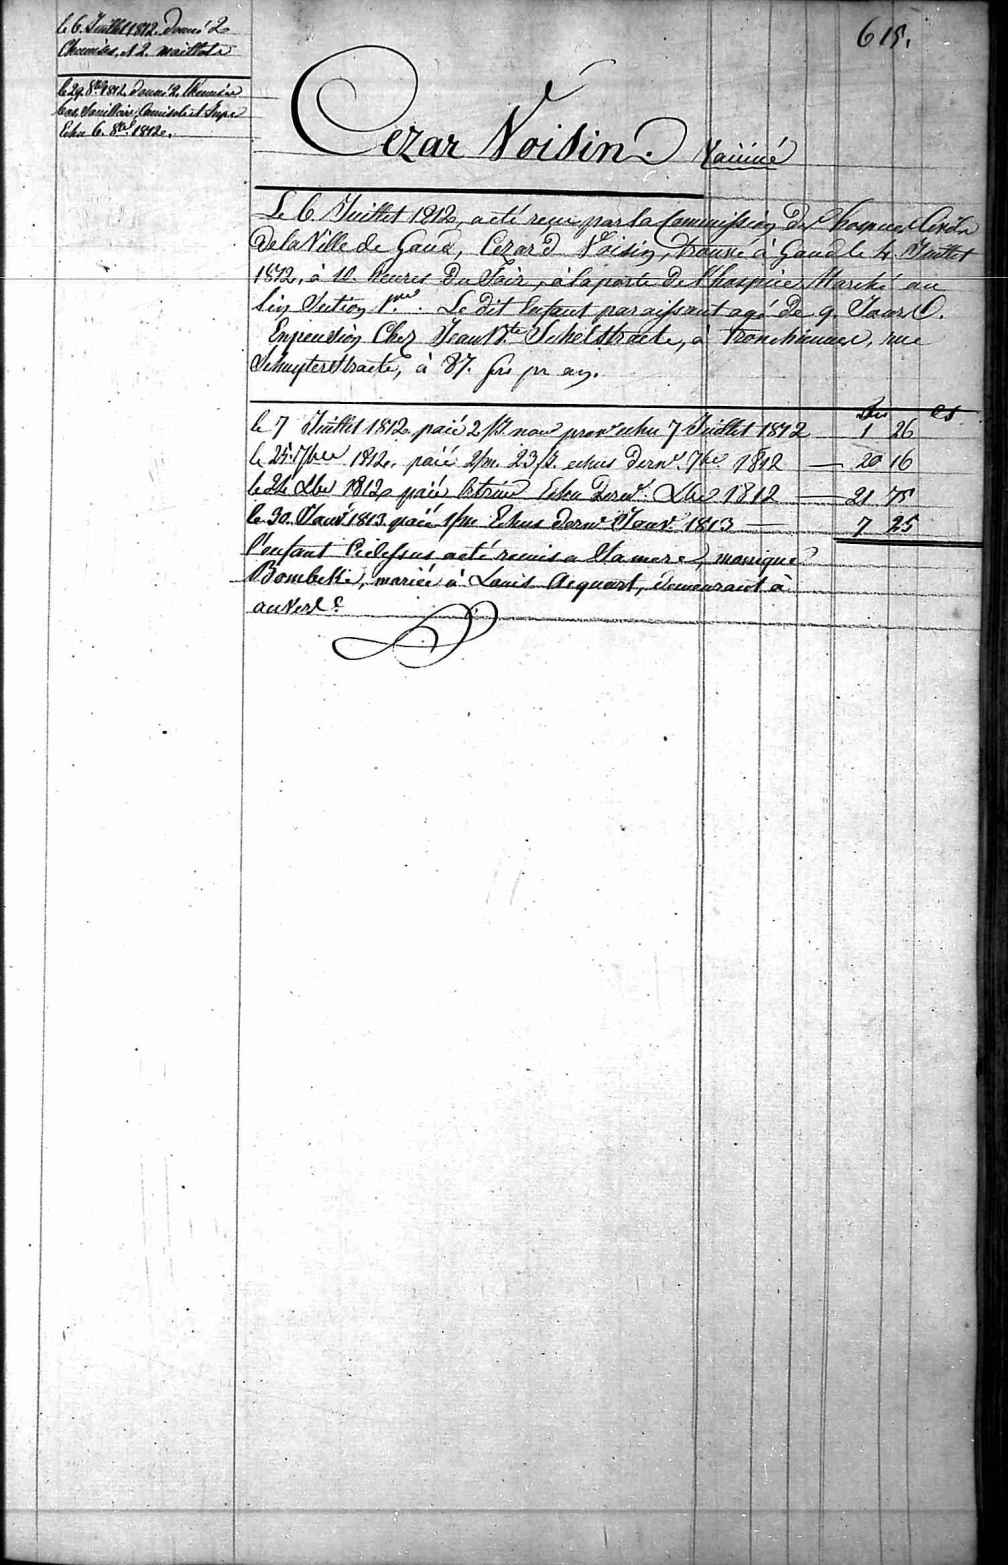 615.
le 6. Juillet 1812. donné 2
Chemises, et 2. maillots
le 29. 8bre 1812. donné 2. Chemises
bas, Camisole et Jupe
Echu 6. 8bre 1812.
Cezar Voisin. Vaciné
Le 6. Juillet 1812, a eté reçu par la Commission des hospices Civils
de la Ville de Gand, Cezard Voisin, trouvé à Gand le 4. Juillet
1812, à 10. heures du Soir, à la porte de l'hospice Marché au
lin Section 1re. Le dit Enfant paraissant agé de 9. Jours.
En pension Chez Jean Bte Schelstraete, à Tronchiennes, rue
Schuyterstraete, à 87. frs pr an.
frs Cs
le 7 Juillet 1812 paié 2/s. echu 7 Juillet 1812 1 26
le 25. 7bre 1812. paié 2/m. 23/s. echus dernr. 7bre 1812 — 20 16
le 24 Xbre 1812 paié le trime Echu dernr. Xbre 1812 — 21 75
le 30. Janvr 1813 paié 1/m Echus dernr. Janvr. 1813 — 7 25
l'enfant Cidessus a eté remis a Sa mere, monique
Bombeke, mariée à Louis Acquart, demeurant à